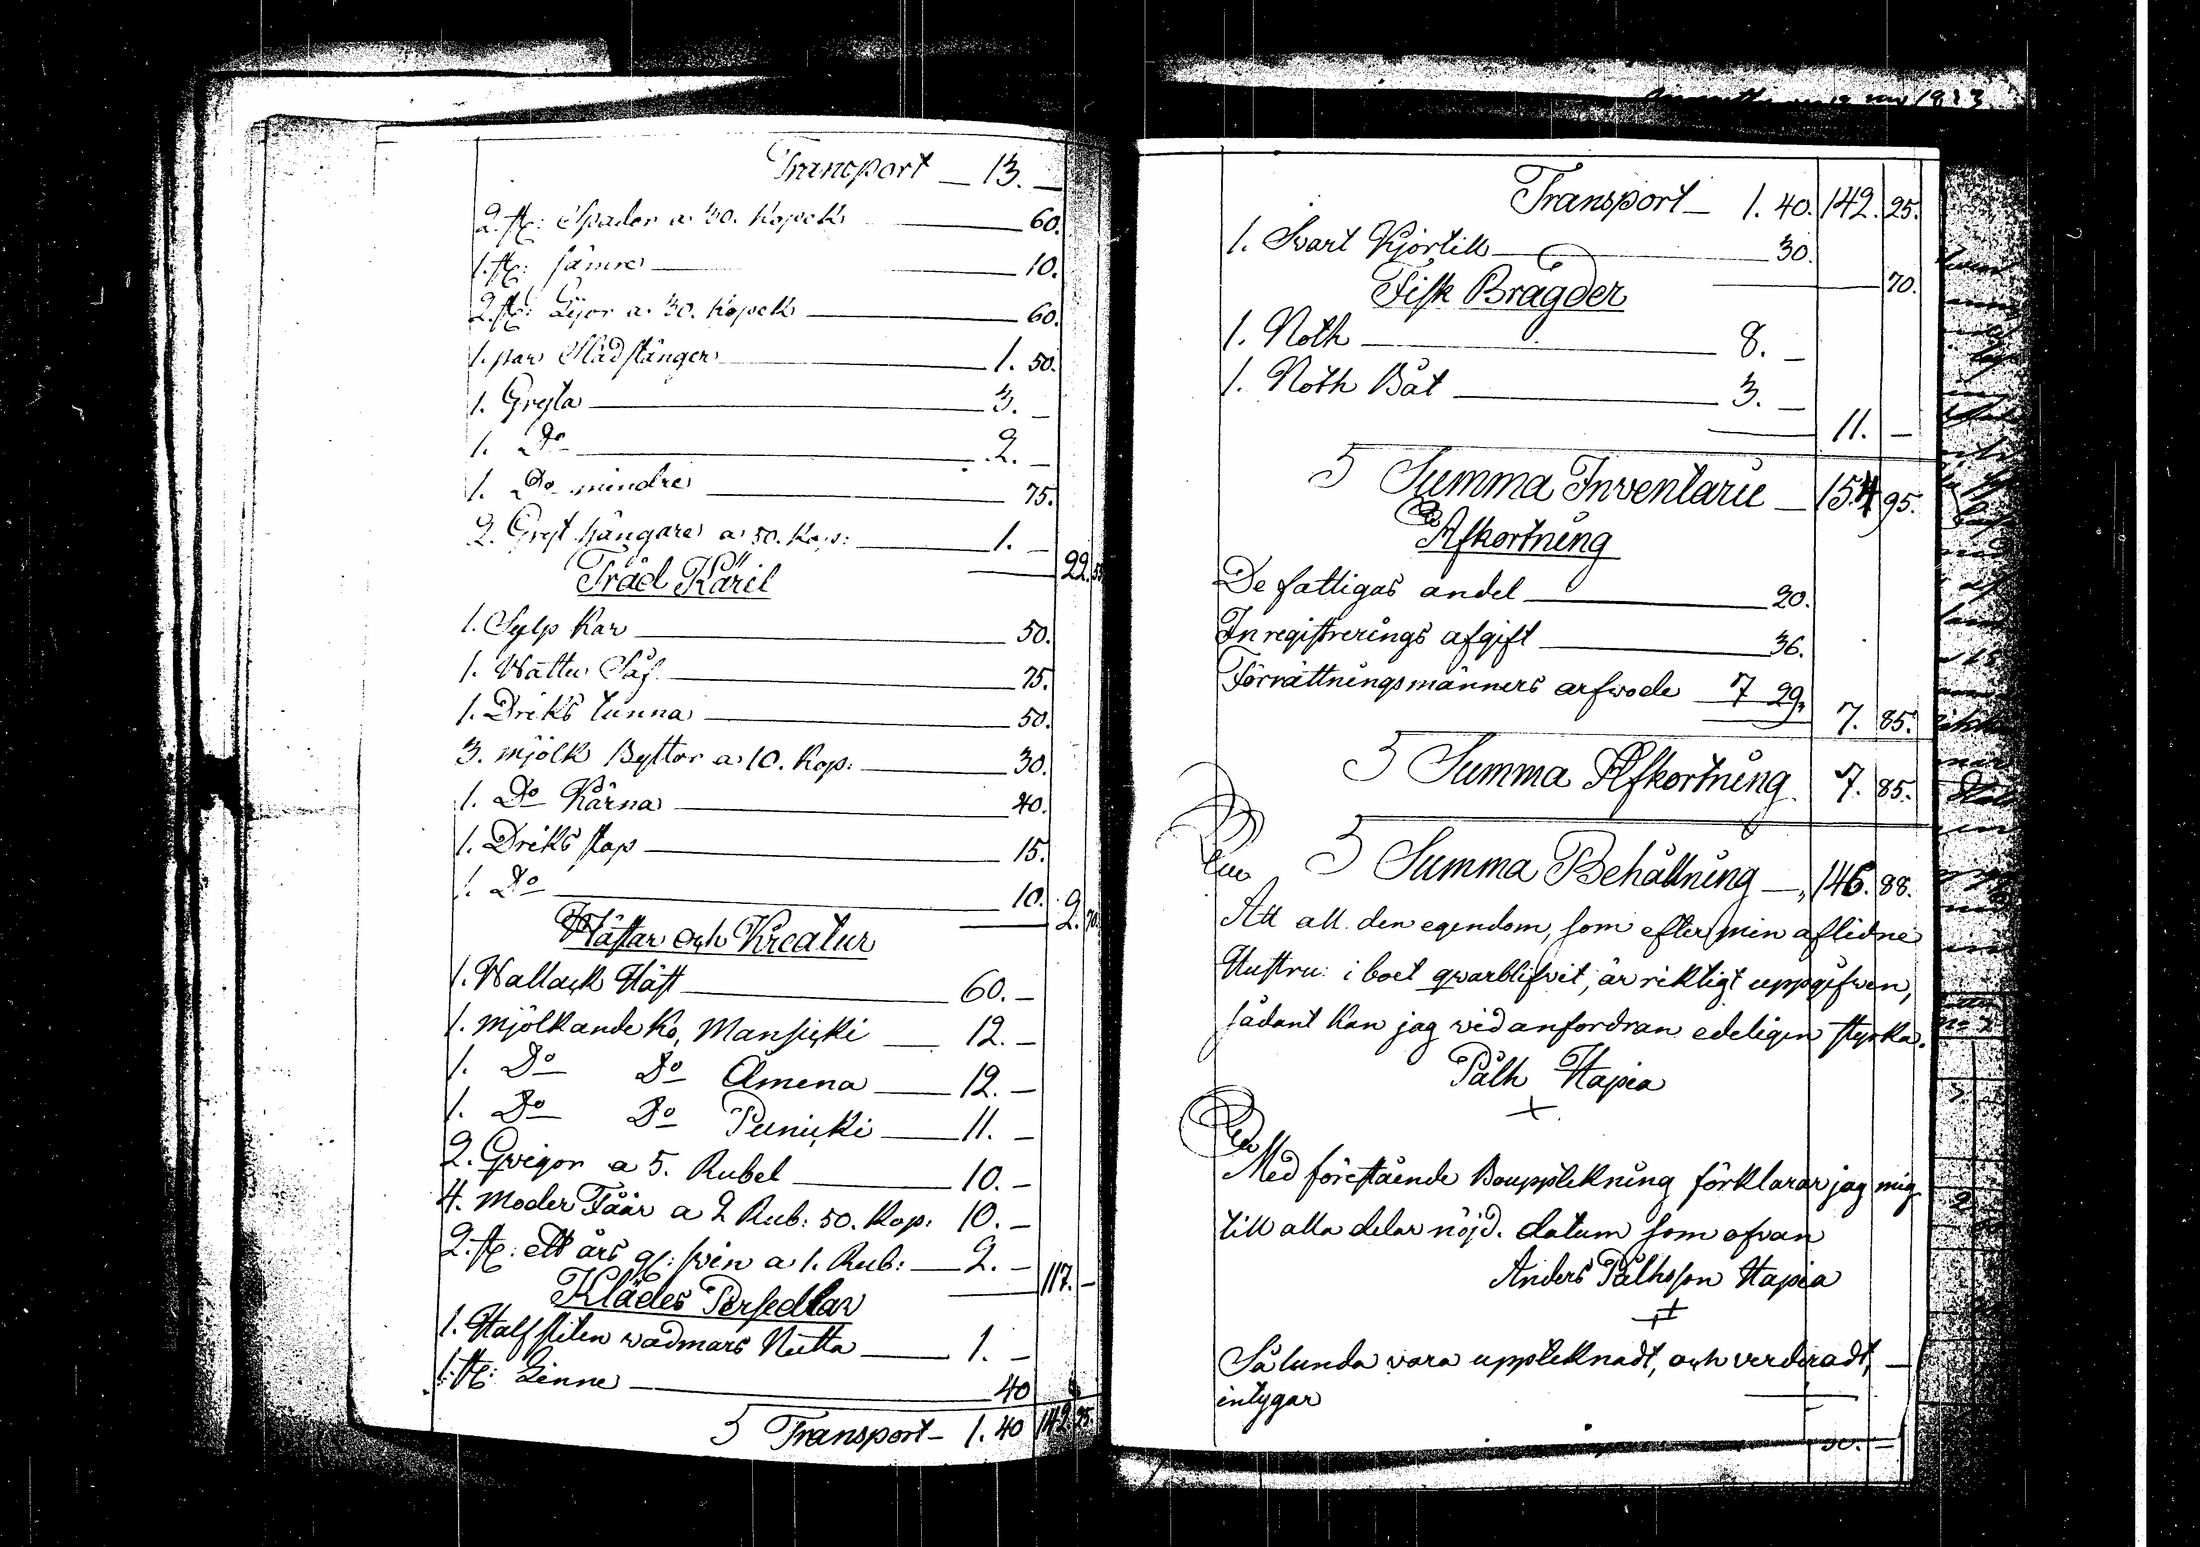 Transport 13. —
2. st: Spader a 30. Kopek 60.
1. st: 10.
2. st: Lyor a 30. Kopek 60.
1. par Slädstänger 1. 50.
1. Gryta 3. —
1. Do 2. —
1. Do mindre 75.
2. Gryt hängare a 50. Kop: 1. —
22. 55
Träd Käril
1. Sylp Kar 50.
1. Wattu Såf 75.
1. Driks tunna 50.
3. mjölk Byttor a 10. Kop: 30.
1. Do Kärna 40.
1. Driks stop 15.
1. Do 10. 2. 70.
Hästar och Kreatur
1. Wallack Häst 60. —
1. mjölkande Ko, Mansicki 12. —
1. Do Do Ämena 12. —
1. Do Do Punicki 11. —
2. Qvigor a 5. Rubel 10. —
4. Moder Fåår a 2 Rub: 50. Kop: 10. —
2. st: ett års gl: svin a 1. Rub: 2. —
117. —
Klädes Persedlar
1. Half sliten wadmars Nutta 1. —
1. st: Linne 40
Transport 1. 40 142. 25.
Transport 1. 40. 142. 25.
1. Svart Kjortill 30.
70.
Fisk Bragder
1. Noth 8. —
1. Noth Båt 3. —
11. —
Summa Inventarii 154 95.
Afkortning
De fattigas andel 20.
Inregistrerings afgift 36.
Förrättningsmänners arfwode 7 29.
7. 85.
Summa Afkortning 7. 85.
Summa Behållning 146. 88.
Att all den egendom, som efter min aflidne
Hustru i boet qwarblifvit, är riktigt uppgifwen,
sådant kan jag vid anfordran edeligen styrka.
Påhl Hapia
+
Med förestående Bouppteckning förklarar jag mig
till alla delar nöjd. datum som ofvan
Anders Påhlsson Hapia
Sålunda vara uppteknadt, och verderadt,
intygar